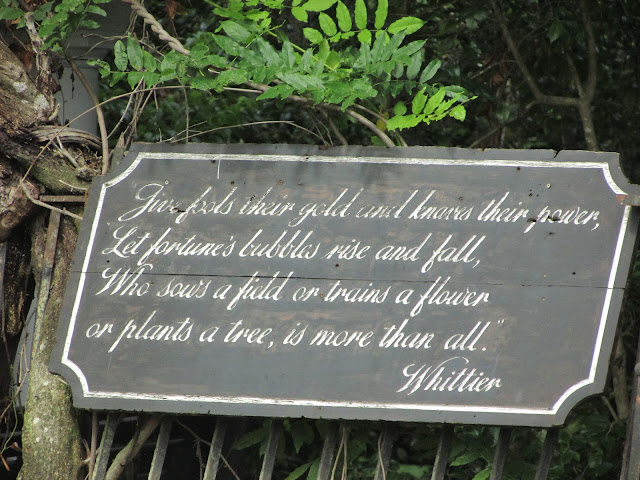 "Give fools their gold and knaves their power,
Let fortune's bubbles rise and fall,
Who sows a field or trains a flower
or plants a tree, is more than all."
Whittier